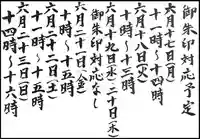 御朱印対応予定
六月十七日(月)
十一時〜十四時
六月十八日(火)
十時〜十三時
六月十九日(水)二十日(木)
御朱印対応なし
六月二十一日(金)
十時〜十五時
六月二十二日(土)
十一時〜十五時
六月二十三日(日)
十四時〜十六時